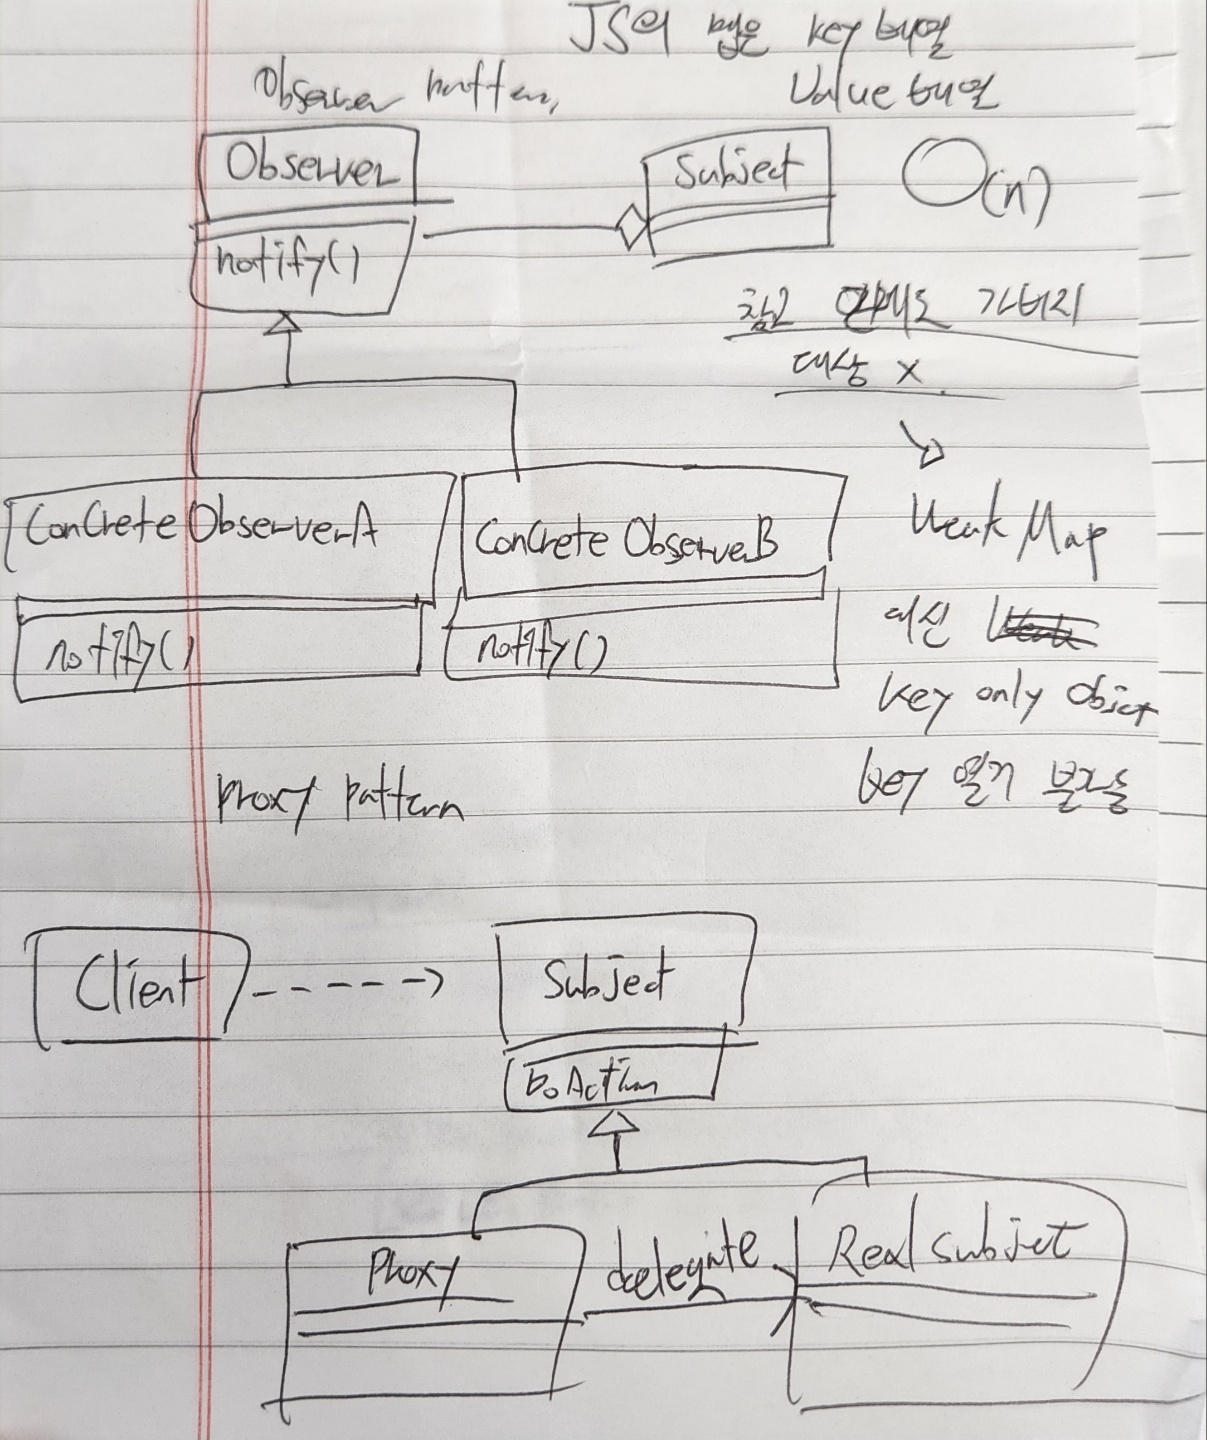 JS의 맵은 key 배열
Value 배열
Observer pattern,
Observer
notify()
Subject
O(n)
참고 안해도 가비지
대상 x
Weak Map
대신
key only Object
key 열거 불가능
Concrete ObserverA
notify()
Concrete ObserverB
notify()
Proxy pattern
Client
Subject
DoAction
Proxy
delegate
Real Subject